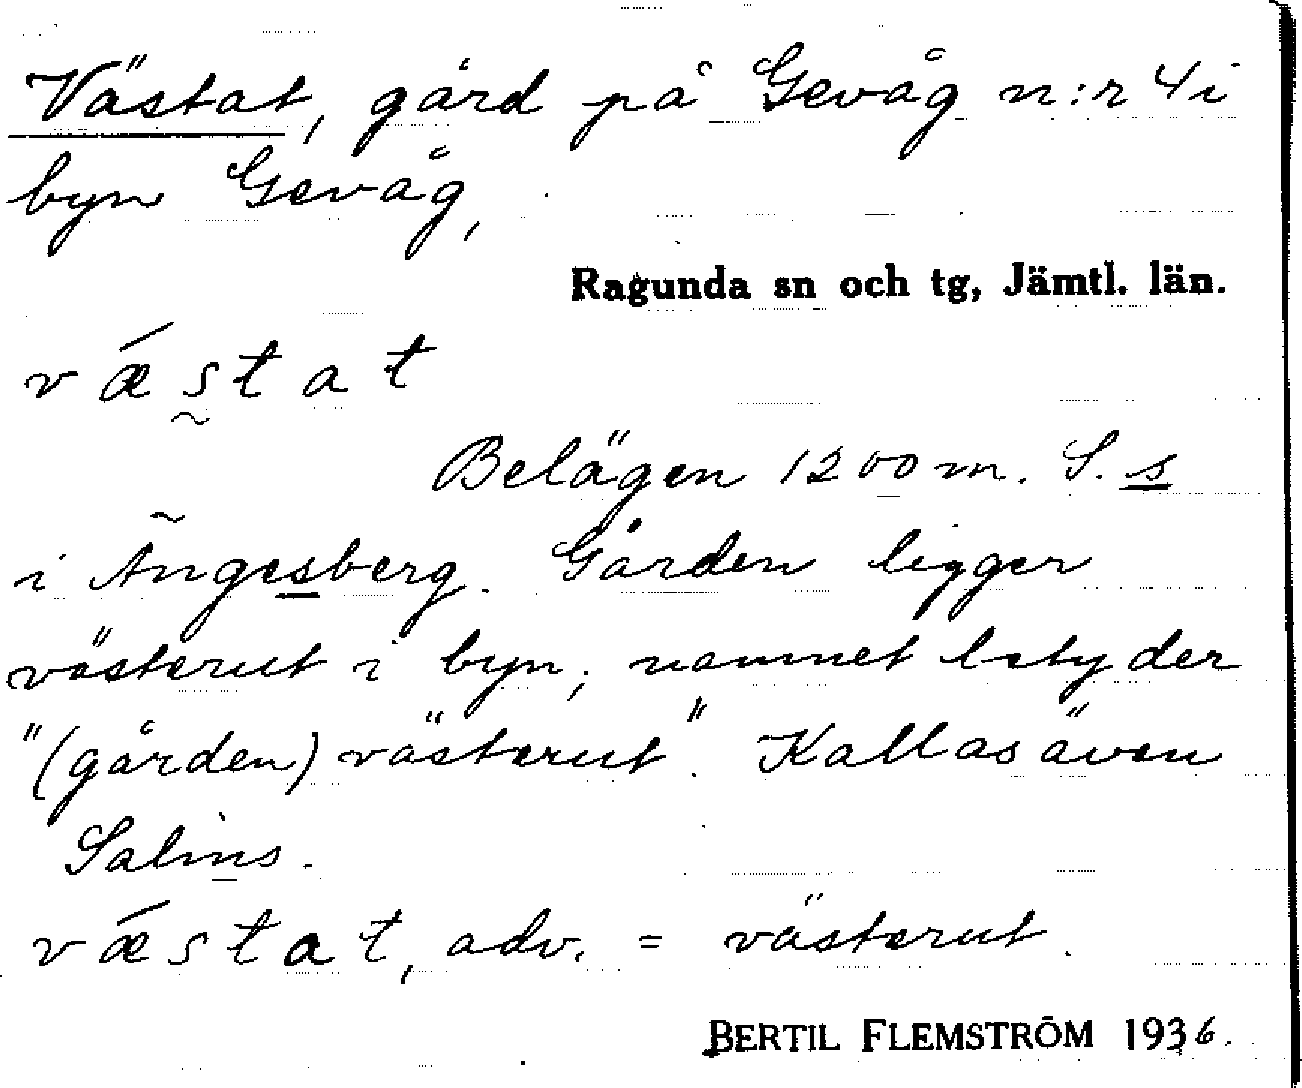 Västat, gård på Gevåg n:r 4 i
byn Gevåg,
Ragunda sn och tg, Jämtl. län.
væ´stat
Belägen 1200 m. S. s
i Ängesberg. Gården ligger
västerut i byn; namnet betyder
"(gården) västerut". Kallas även
Salins.
væ´stat, adv. = västerut.
BERTIL FLEMSTRÖM 1936.